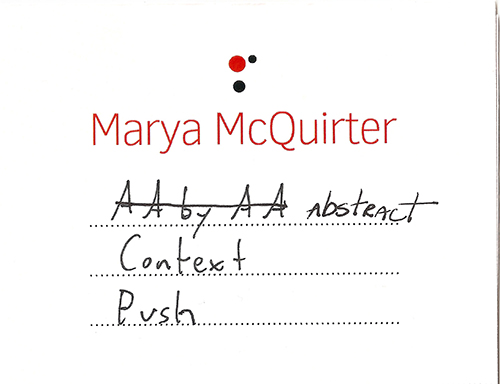 Marya McQuirter
AA by AA ABSTRACT
Context
Push